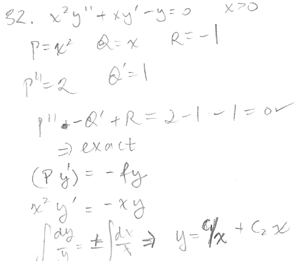 32. x²y'' + xy' - y = 0 x>0
P = x² Q = x R = -1
P'' = 2 Q' = 1
P'' - Q' + R = 2 - 1 - 1 = 0 ✓
⇒ exact
(Py') = -fy
x²y' = -xy
∫ dy/y = ± ∫ dx/x ⇒ y = c₁/x + c₂x